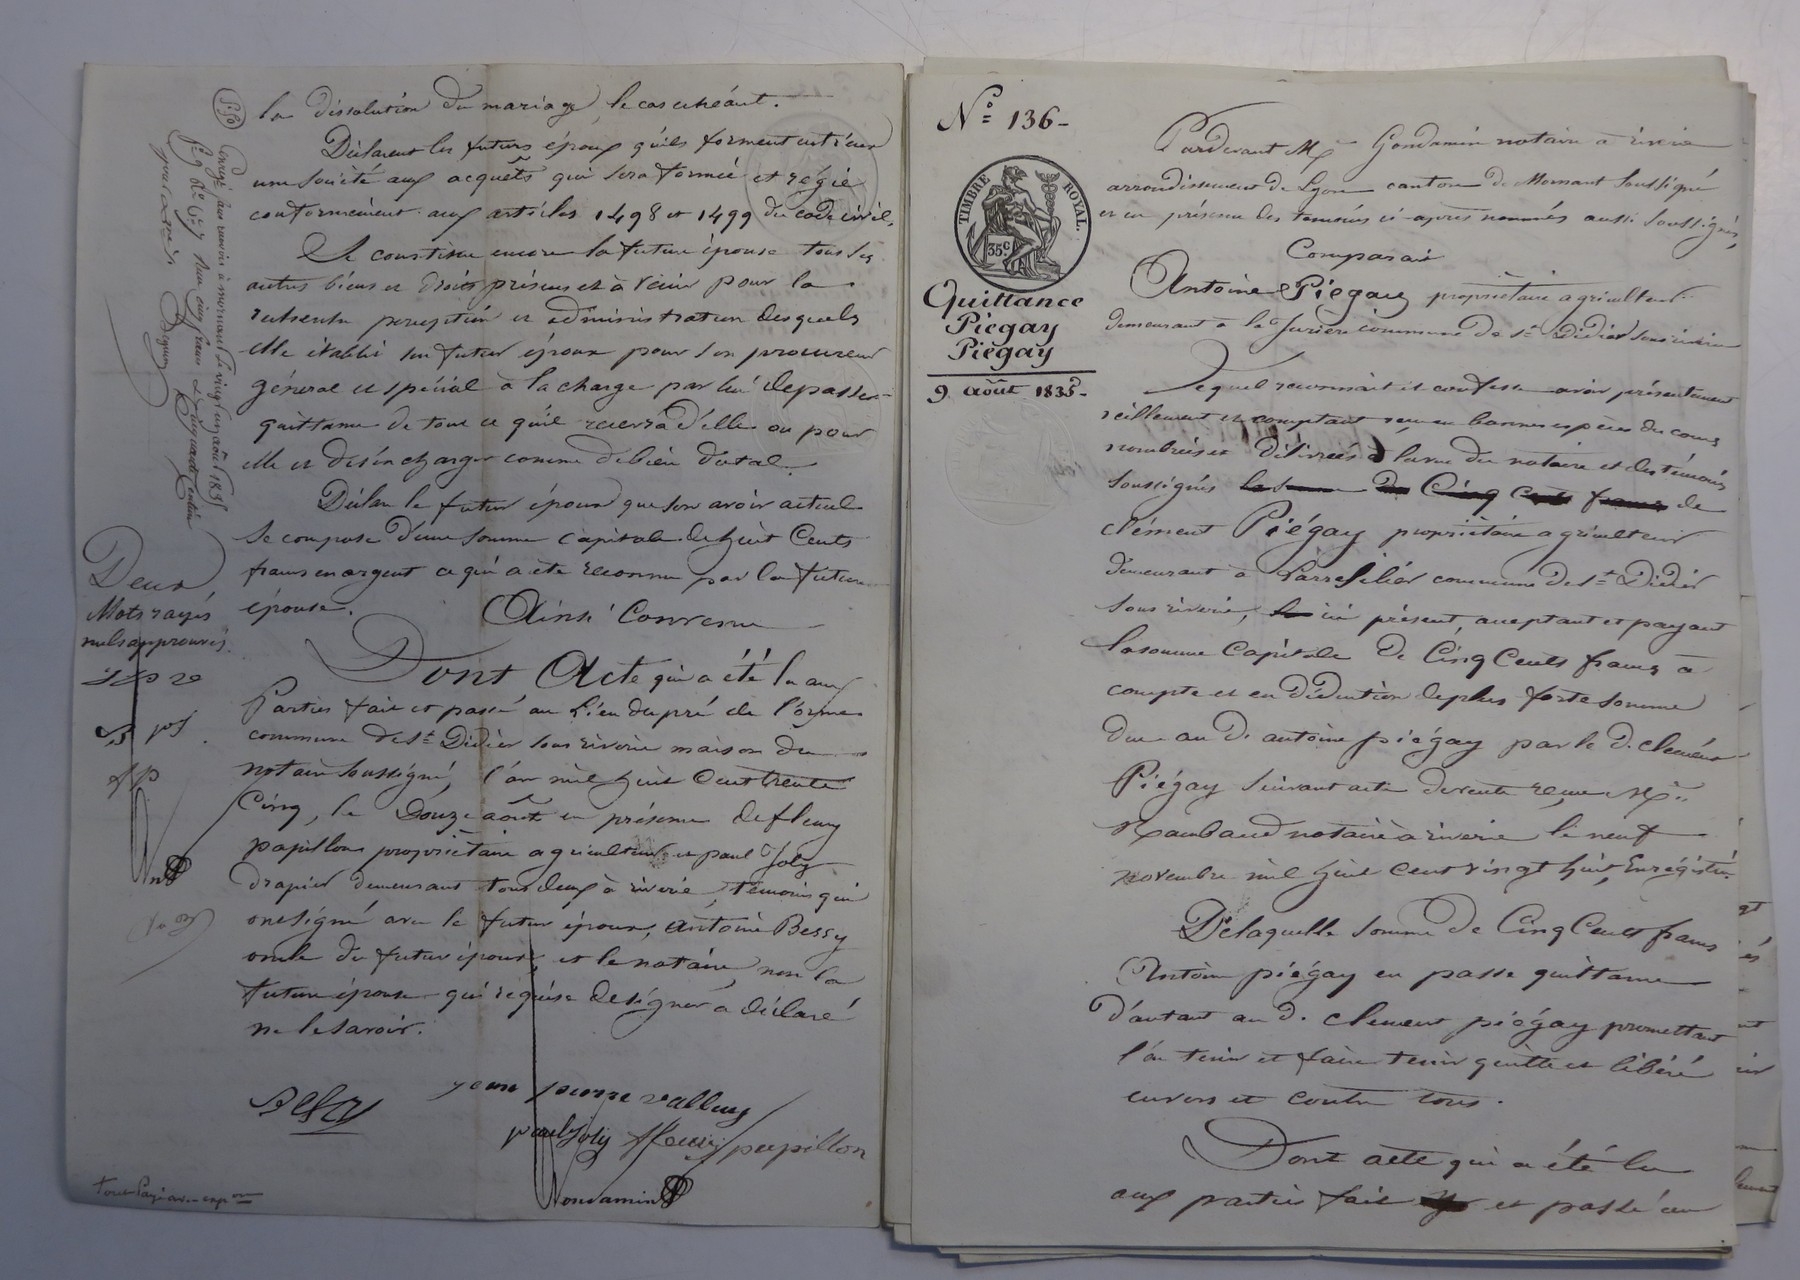 la dissolution du mariage, le cas échéant.
Déclarent les futurs époux qu'ils forment entr'eux
une société aux acquêts qui sera formée et régie
conformément aux articles 1498 et 1499 du code civil.
Se constitue encore la future épouse tous ses
autres biens et droits présens et à venir pour la
recherche perception et administration desquels
elle établi son futur époux pour son procureur
général et spécial à la charge par lui de passer
quittance de tout ce qu'il recevra d'elle ou pour
elle et d'en charger comme de bien dotal.
Déclare le futur époux que son avoir actuel
se compose d'une somme capitale de huit Cents
francs en argent ce qui a été reconnu par la future
épouse. Ainsi Convenu
Dont Acte qui a été lu aux
Parties fait et passé au Lieu du pré de l'orme
commune de St Didier sous riverie maison du
notaire soussigné, l'an mil huit Cent trente
Cinq, le Douze août en présence de fleury
papillon propriétaire agriculteur et paul Joly
drapier demeurant tous deux à riverie, témoins qui
ont signé avec le futur époux, antoine Bessy
oncle du futur époux, et le notaire, non la
future épouse qui requise de signer a déclaré
ne le savoir.
jean pierre valluy
paul Joly fleury papillon
Gondamin
Deux
Mots rayés
nuls approuvés.
pj
fp
Enregé sans renvoi à mornant le vingt un août 1835
fo 9 Ro Co 7 Reçu cinq francs
N.º 136-
TIMBRE ROYAL.
35c
Quittance
Piégay
Piégay
9 août 1835-
Pardevant Me Gondamin notaire à riverie
arrondissement de Lyon canton de Mornant soussigné
et en présence des temoins ci-après nommés aussi soussignés,
Comparait
Antoine Piégay propriétaire agriculteur
demeurant à la commune de st Didier sous riverie
Lequel reconnait et confesse avoir présentement
réellement et comptant reçu en bonnes espèces du cours
nombrées et délivrées à la vue du notaire et des témoins
soussignés la somme de Cinq Cents francs de
clément Piégay propriétaire agriculteur
demeurant à commune de st Didier
sous riverie, ici présent, acceptant et payant
la somme Capitale de Cinq Cents francs à
compte et en déduction de plus forte somme
due au d. antoine piégay par le d. clément
Piégay suivant acte de vente reçu Me
Raimbaud notaire à riverie le neuf
novembre mil huit cent vingt huit, Enrégistré.
De laquelle somme de Cinq Cents francs
Antoine piégay en passe quittance
d'autant au d. clement piégay promettant
l'en tenir et faire tenir quitte et libéré
envers et contre tous.
Dont acte qui a été lu
aux parties fait et passé au